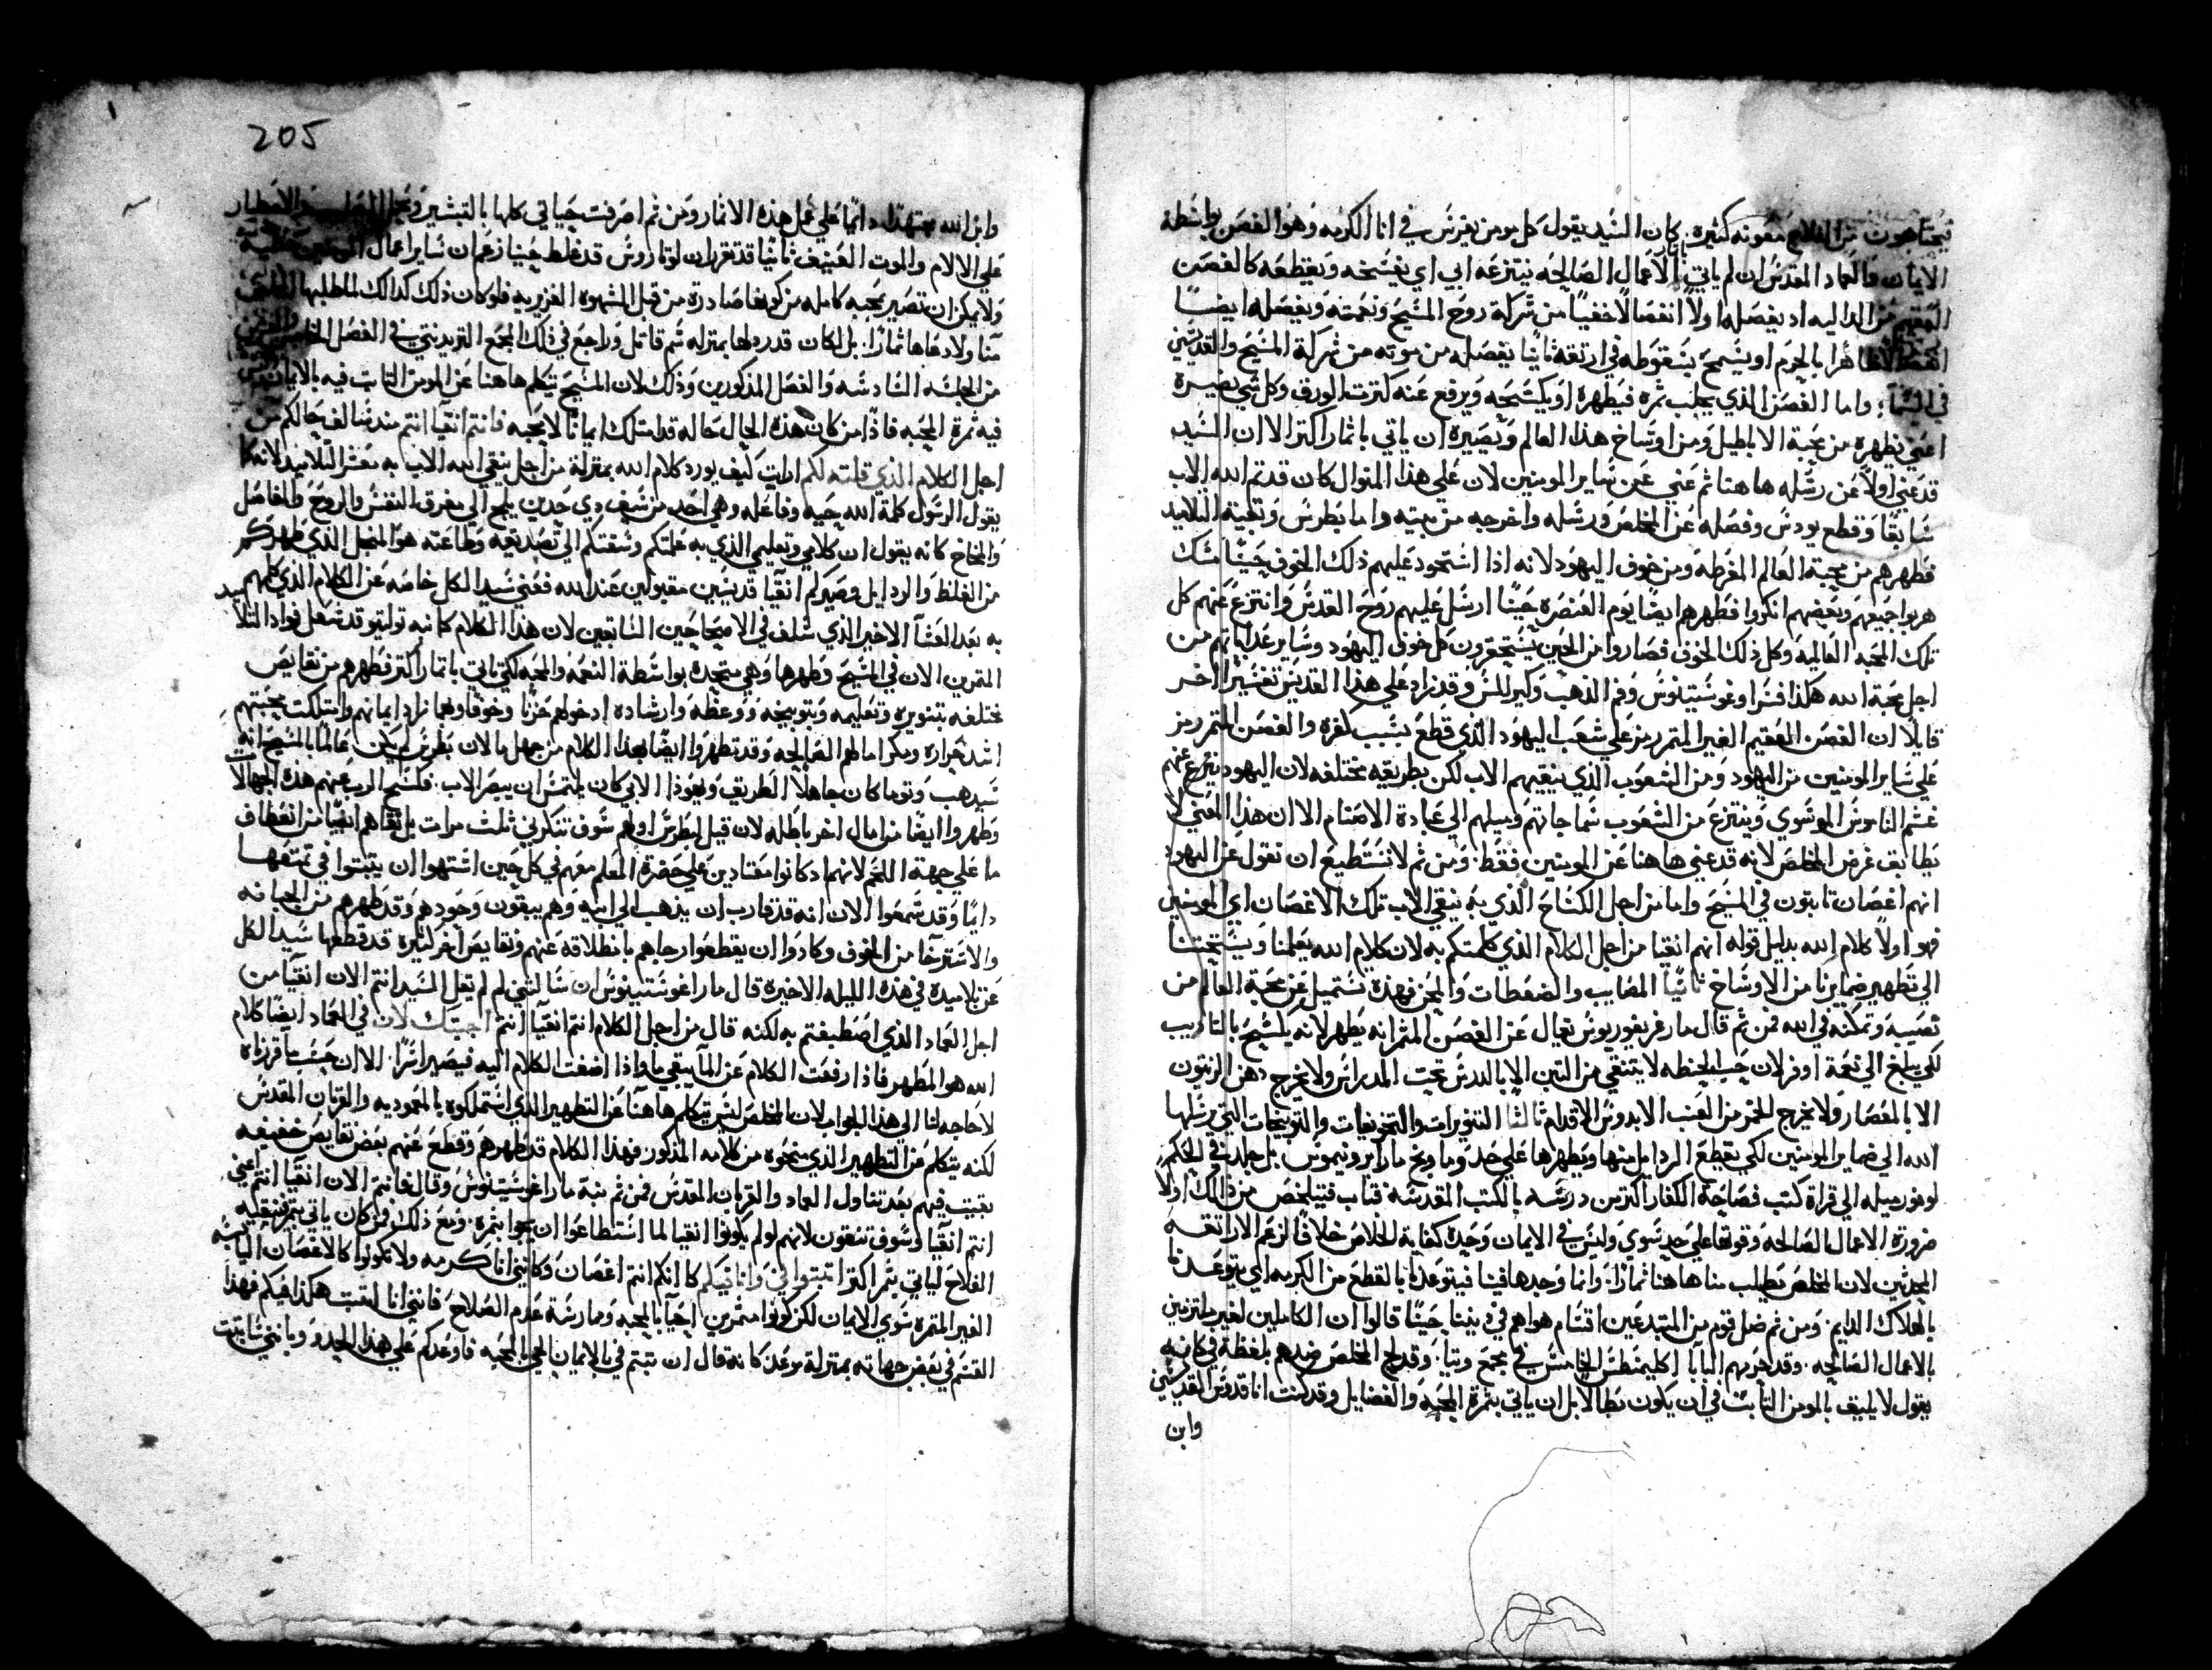 فيحتاجون من الفلاح معونه كثيره. كان السيد يقول كل مومن يغرس في انا الكرمه وهو الغصن بواسطة
الايمان والعماد المقدس ان لم ياتي باثمار الاعمال الصالحه ينتزعه ابي اي يفسخه ويقطعه كالغصن
العقيم من الداليه اد يفصله اولاً انفصالاً خفياً من شركة روح المسيح ونعمته ويفصله ايضاً
ظاهرا بالحرم او يسمح بسقوطه في ارتقة ثانيا يفصله من موته من شركة المسيح والقديسين
في السماء. واما الغصن الذي يجلب ثمره فيطهره او يكسحه ويرفع عنه كترت الورق وكل شي يضيره
اعني يطهره من محبة الاباطيل ومن اوساخ هذا العالم ويصيره ان ياتي باثمار اكتر الا ان السيد
قد عني اولاً عن رسله هاهنا ثم عني عن ساير المومنين لان علي هذا المنوال كان قدتم الله الاب
سابقا وقطع يودس وفصله عن المخلص ورسله واخرجه من بيته واما بطرس وبقية التلاميد
فطهرهم من محبة العالم المفرطه ومن خوف اليهود لانه اذا استحود عليهم ذلك الخوف حيناً مسك
هربوا جميعهم وبعضهم انكروا فطهرهم ايضا يوم العنصره حيناً ارسل عليهم روح القدس وانتزع عنهم كل
تلك المحبه العالميه وكل ذلك الخوف فصاروا من الحين يستحقرون كل خوف اليهود وساير عداباتهم من
اجل محبة الله هكذا فسر اوغوستينوس وفم الذهب وكيرللس وقد زاد علي هذا القديس تفسيرا اخر
قايلا ان الغصن العقيم الغير المتمر رمز علي شعب اليهود الذي قطع بسبب كفره والغصن المتمر رمز
علي ساير المومنين من اليهود ومن الشعوب الذي ينقيهم الاب لكن بطريقه مختلفه لان اليهود ينتزع عنهم
غشم الناموس الموسوي وينتزع من الشعوب سماجاتهم وميلهم الي عبادة الاصنام الا ان هذا المعني لا
يطابق غرض المخلص لانه قد عني هاهنا عن المومنين فقط. ومن ثم لا نستطيع ان نقول عن اليهود
انهم اغصان تابتون في المسيح واما من اجل الكساح الذي به ينقي الاب تلك الاغصان اي المومنين
فهو اولاً كلام الله بدليل قوله انهم انقيا من اجل الكلام الذي كلمتكم به لان كلام الله يعلمنا ويستحتنا
الي تطهير ضمايرنا من الاوساخ ثانيا المصايب والضغطات والمحن فهذه تستميل عن محبة العالم من
تصيبه وتمكنه في الله فمن ثم قال مار غريغوريوس يقال عن الغصن المتمر انه يطهر لانه يكسح بالتاديب
لكي يبلغ الي نعمة اوفر لان حب الحنطه لا يتنقي من التبن الا بالدرس تحت المدراس ولا يخرج دهن الزيتون
الا بالمعصار ولا يخرج الخمر من العنب الا بدوس الاقدام ثالثا التنويرات والتخويفات والتوبيخات التي يرسلها
الله الي ضماير المومنين لكي يقطع الردايل منها ويطهرها علي حد وما وبخ مار ايرونيموس بل جلد في الحكم
لوفور ميله الي قراة كتب فصاحة الكفار اكتر من درسه بالكتب المقدسه فتاب فتيلخص من ذلك اولاً
ضرورة الاعمال الصالحه وقوتها علي حد سوي وليس في الايمان وحده كفاية للخلاص خلافا لزعم الاراتقه
المحدثين لان المخلص يطلب منا هاهنا ثمارا. وانما وجدها فينا فيتوعدنا بالقطع من الكرمه اي يتوعدنا
بالهلاك الدايم. ومن ثم ضل قوم من المبتدعين اقتسام هواهم في فيينا حينا قالوا ان الكاملين لغير ملتزمين
بالاعمال الصالحه. وقد حرمهم البابا اكليمنطس الخامس في مجمع وينا. وقد لمح المخلص ضدهم بلفظة في كانه
يقول لا يليق بالمومن التابت في ان يكون بطالا بل ان ياتي بثمرة المحبه والفضايل وقد كنت انا قدوس القديسين
وابن
205
وابن الله مجتهدا دايما علي عمل هذه الاثمار ومن ثم اصرفت حياتي كلها بالتبشير
علي الالام والموت العنيف ثانيا قد تقرر ان لوتاروس قد غلط حينا زعم ان ساير اعمال المومنين خطيه
ولا يمكن ان تصير بمحبه كامله من كونها صادرة من قبل الشهوه الغزيريه فلو كان ذلك كدالك لما طلبها
منا ولا دعاها ثمارا. بل لكان قد ردلها بمنزلة سم قاتل وراجع في ذلك المجمع التريدنتيني في الفصل
من الجلسه السادسه والفصل المذكورين وذلك لان المسيح يتكلم هاهنا عن المومن التابت فيه بالايمان
فيه ثمرة المحبه فاذا من كان هذه الحال حاله قد امتلك ايمانا لا محبه فانتم انقيا انتم منذ سالف حالكم من
اجل الكلام الذي قلته لكم ارايت كيف يورد كلام الله بمنزلة من اجل ينقي الله الاب به معشر التلاميد لانه كما
يقول الرسول كلمة الله حيه وفاعله وهي احد من سيف دي حدين يلج الي مفرق النفس والروح والمفاصل
والمخاخ كانه يقول ان كلامي وتعليمي الذي به علمتكم وسقتكم الي تصديقه وطاعته هو المنجل الذي طهركم
من الغلط والردايل وصيركم انقيا قديسين مقبولين عند الله فعني سيد الكل خاصه عن الكلام الذي كلمهم
به بعد العشا الاخير الذي سلف في الاصحاحين السابقين لان هذا الكلام كانه نواتير قد شعل فواد التلاميد
المقربين الان في المسيح وطهرها وهي متحده بواسطة النعمه والمحبه لكي تاتي باثمار اكتر فطهرهم من نقايص
مختلفه بتنويره وتعليمه وبتوبيخه ووعظه وارشاده ادخولهم حزنا وخوفا وهما زاد ايمانهم وامتلكت محبتهم
اشد حراره ومكن امالهم الصالحه وقد تطهروا ايضا بهذا الكلام من جهل ما لان بطرس لم يكن عالما بالمسيح انه
سيدهب وتوما كان جاهلا الطريق ويهوذا الابي كان يلتمس ان يبصر الاب. فكسح الرب عنهم هذه الجهالات
وطهروا ايضا من امال اخر باطله لان قيل لبطرس اولهم سوف تنكرني ثلث مرات بل نقاهم ايضا من انعطاف
ما علي جهة اللحم لانهم اد كانوا معتادين علي حضرة المعلم معهم في كل حين اشتهوا ان يتبتوا في تمتعها
دايما وقد سمعوا الان انه قد قارب ان يذهب الي ابيه وهم يبقون وحودهم وقد طهرهم من الجبانه
والاسترخا من الخوف وكادوا ان يقطعوا رجاهم بانطلاقه عنهم ونقايص اخر كثيره قد قطعها سيد الكل
عن تلاميده في هذه الليله الاخيره قال مار اغوستينوس ان سالتني لم لم يقل السيد انتم الان انقيا من
اجل العماد الذي اصطبغتم به لكنه قال من اجل الكلام انتم انقيا انتم اجيبك لان في العماد ايضا كلام
الله هو المطهر فاذا رفعت الكلام عن الما يبقي ما واذا اضفت الكلام اليه فيصير سرا. الا ان حسب ما قرناه
لا حاجه لنا الي هذا الجواب لان المخلص ليس يتكلم هاهنا عن التطهير الذي استملكوه بالمعموديه والقربان المقدس
لكنه يتكلم عن التطهير الذي منحوه من كلامه المذكور فهذا الكلام قد طهرهم وقطع عنهم بعض نقايص خفيفه
بقيت فيهم بعد تناول العماد والقربان المقدس فمن ثم نبه مار اغوستينوس وقال فانتم الان انقيا انتم اعني
انتم انقيا وسوف تنقون لانهم لو لم يكونوا انقيا لما استطاعوا ان يجوا بثمره. ومع ذلك من كان ياتي بثمر فينقيه
الفلاح لياتي بثمر اكتر اتبتوا في وانا فيكم كما انكم انتم اغصان وكانني انا كرمه ولا تكونوا كالاغصان اليابسه
الغير المتمره سوي الايمان لكن كونوا متمرين احيا بالمحبه وممارسة عدم الصلاح فانني انا اتبت هكذا فيكم فهذا
القسم في بعض جهاته بمنزلة موعد كانه قال ان تبتم في بالايمان الحي بالمحبه فاوعدكم علي هذا الحدو وبانني ساتبت